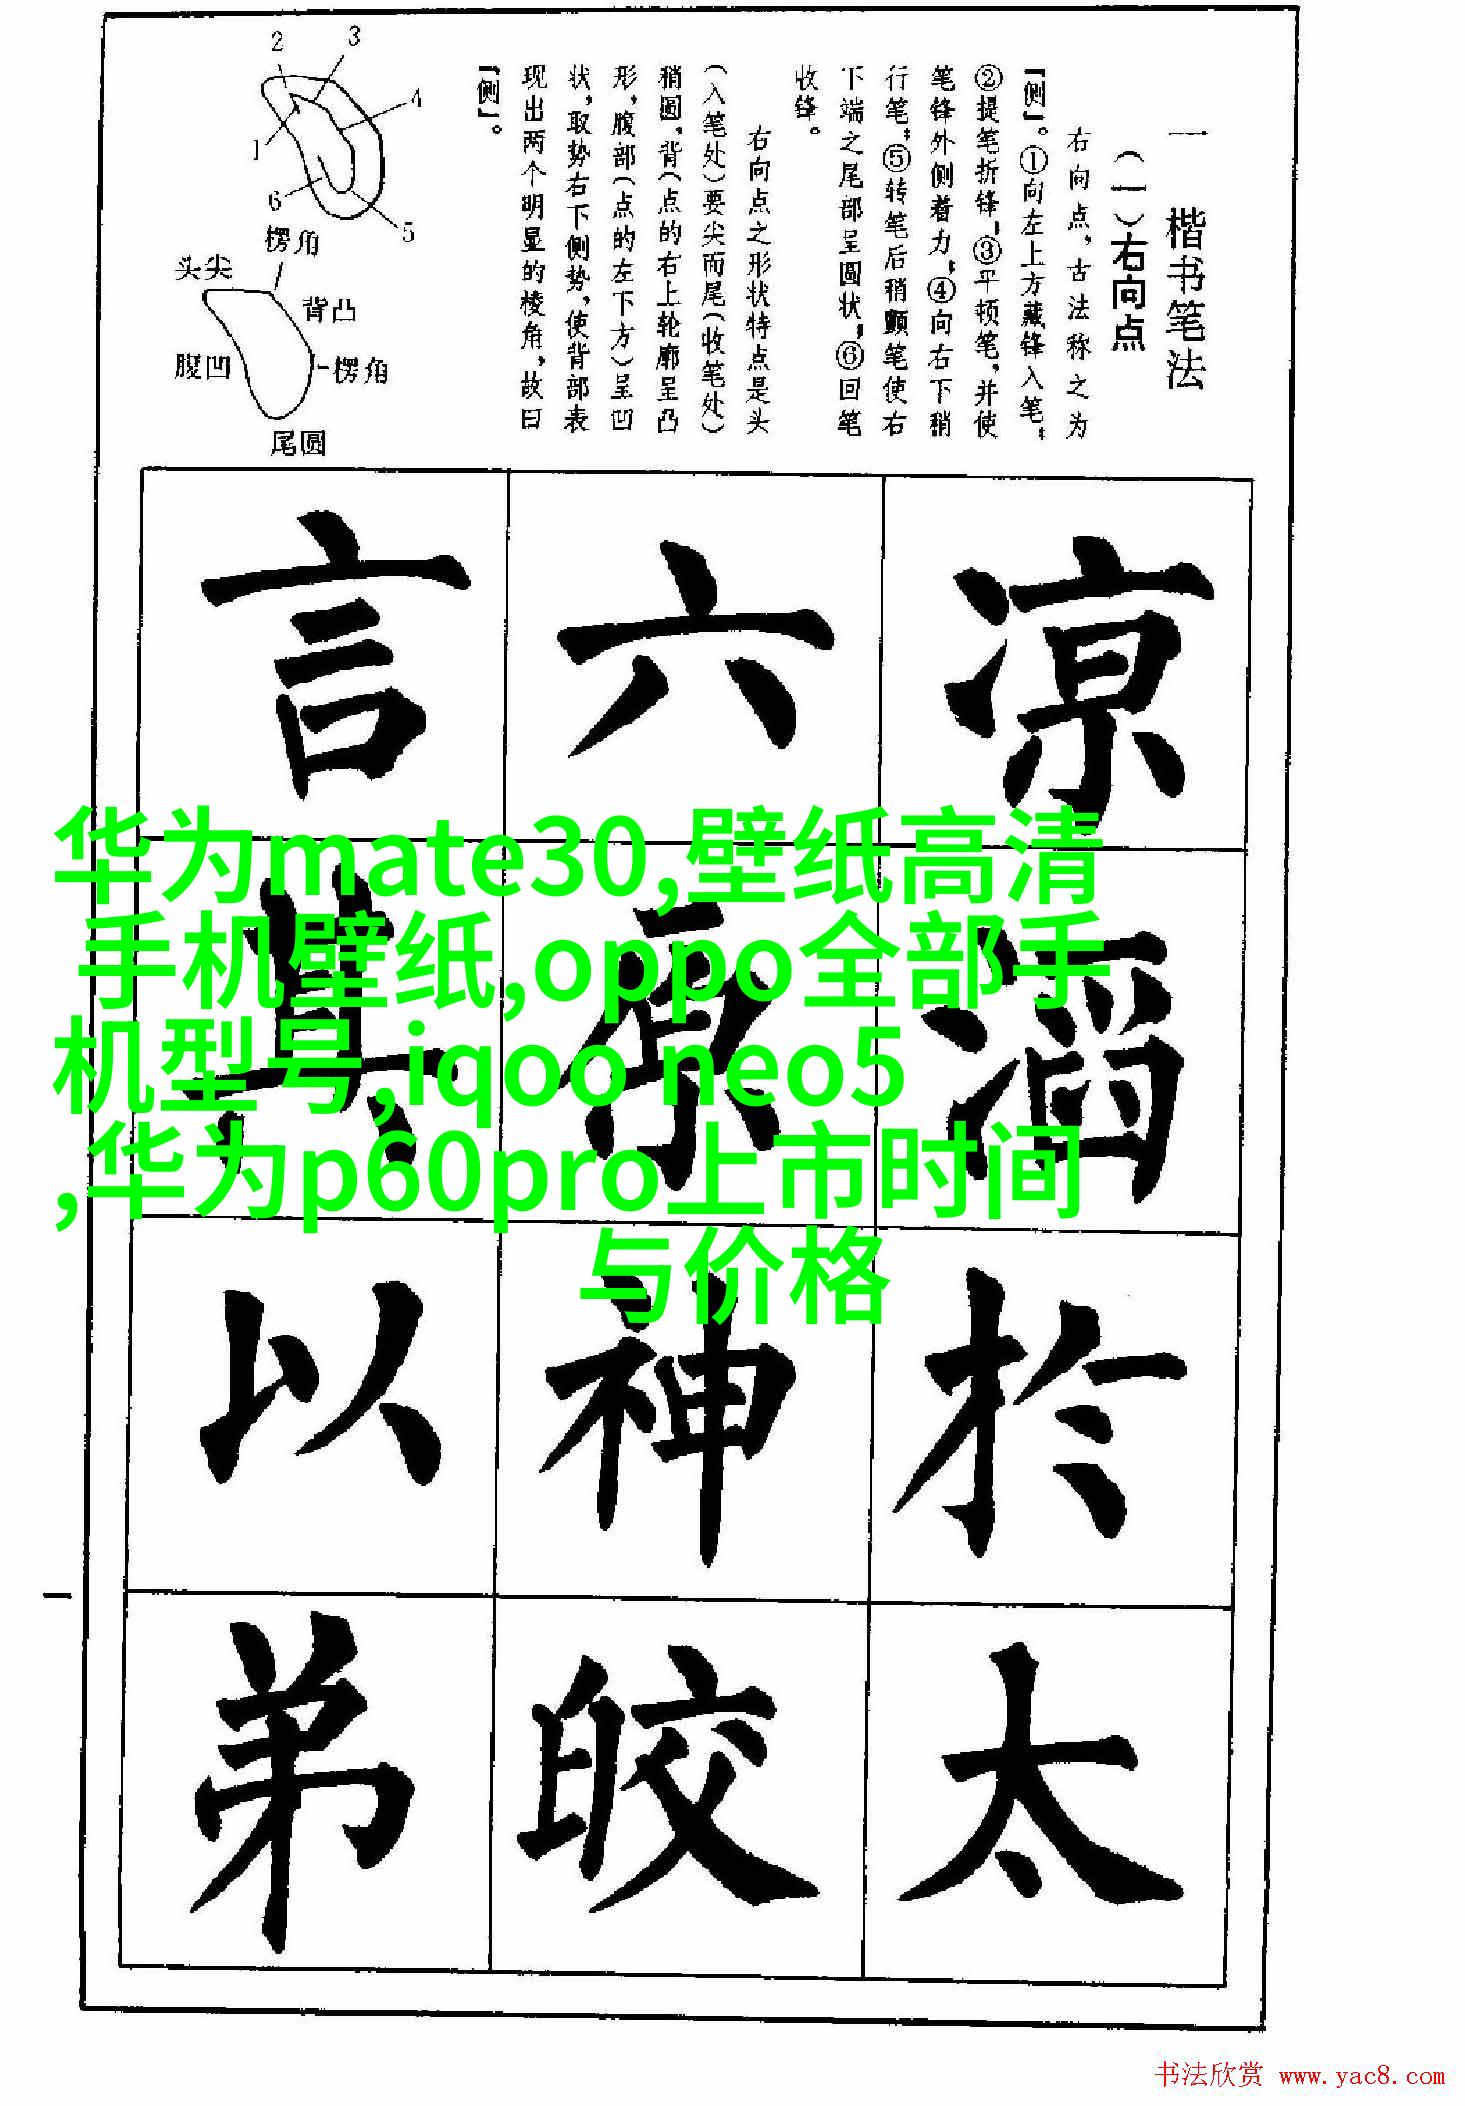 一 楷书笔法
（一）右向点
右向点，古法称之为
『侧』。①向左上方藏锋入笔；
②提笔折锋；③平顿笔，并使
笔锋外侧着力；④向右下稍
行笔；⑤转笔后稍颤笔使右
下端之尾部呈圆状；⑥回笔
收锋。
右向点之形状特点是头
（入笔处）要尖而尾（收笔处）
稍圆，背（点的右上轮廓呈凸
形，腹部（点的左下方）呈凹
状，取势右下侧势，使背部表
现出两个明显的棱角，故曰
『侧』。
2
3
4
1
6
5
楞角
头尖
背凸
腹凹
楞角
尾圆
凉
滔
於
太
六
原
神
皎
言
其
以
弟
华为mate30,壁纸高清
手机壁纸,oppo全部手
机型号,iqoo neo5
,华为p60pro上市时间
与价格
一
书法欣赏 www.yac8.com